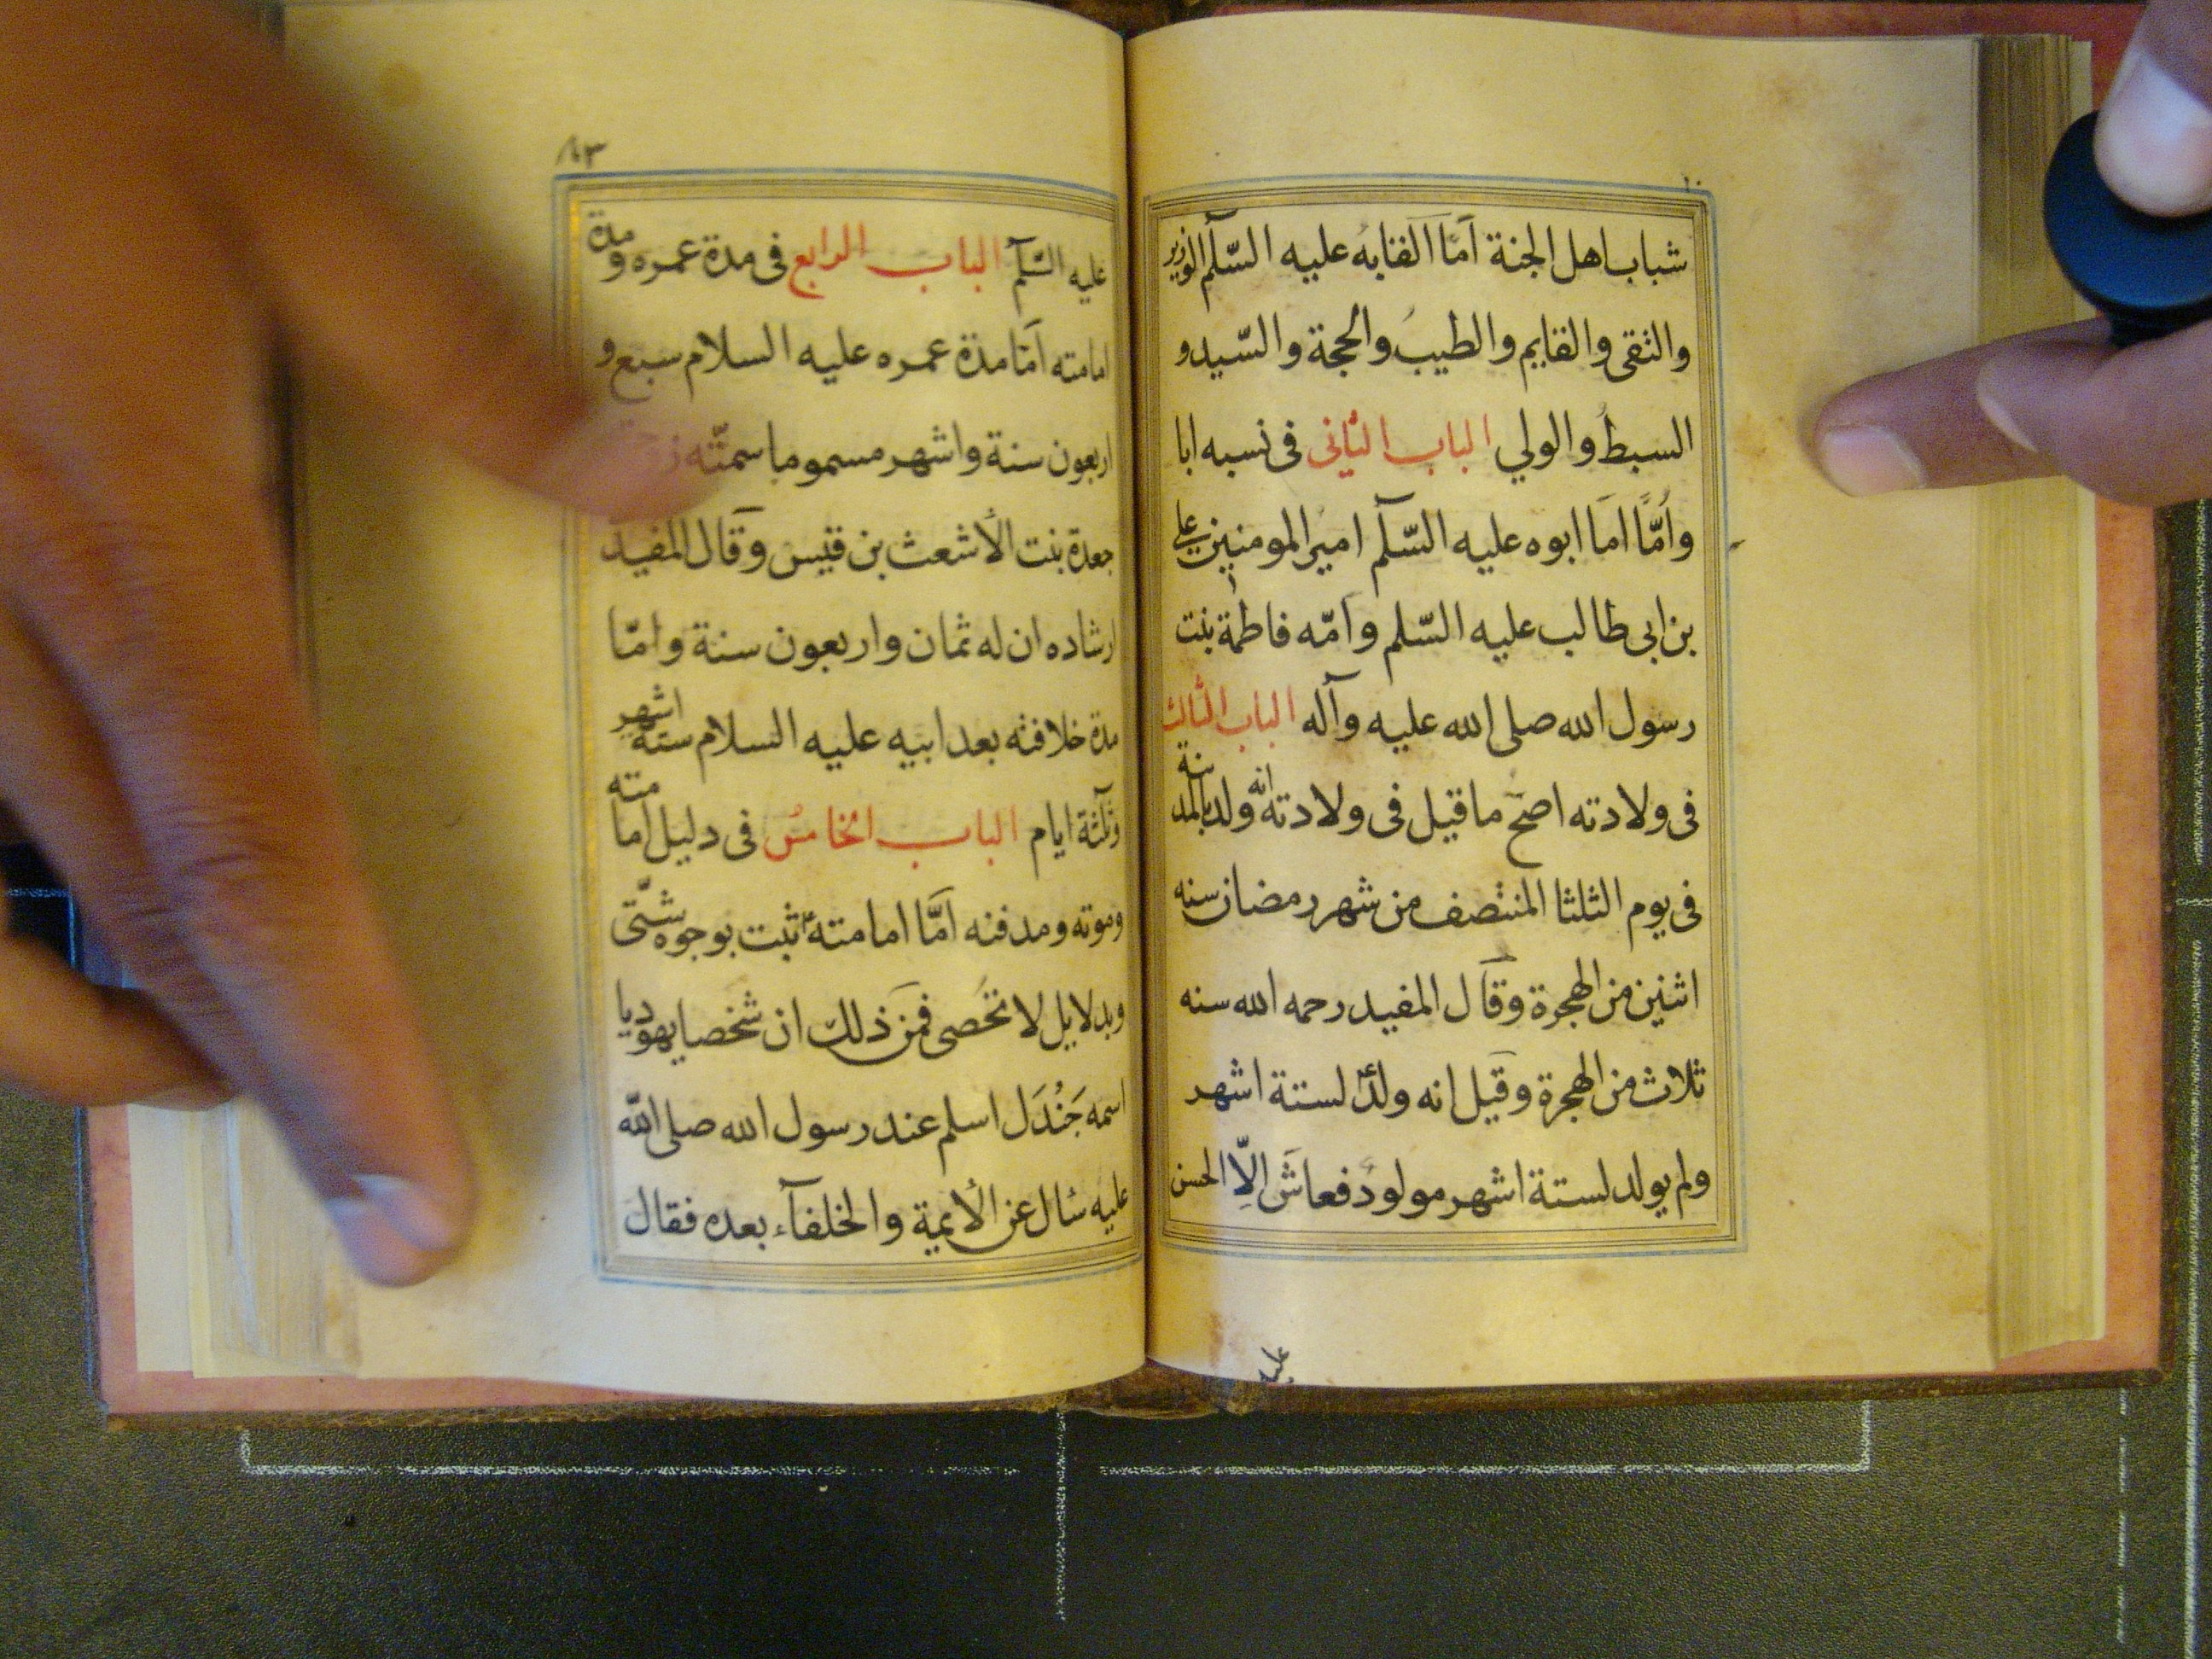 شباب اهل الجنة امّا القابه عليه السّلم الوزير
والتقى والقايم والطيب والحجة والسّيد و
السبط والولي الباب الثانى فى نسبه ابا
وامّا امّا ابوه عليه السّلم امير المومنين على
بن ابى طالب عليه السّلم وامّه فاطمة بنت
رسول الله صلى الله عليه وآله الباب الثالث
فى ولادته اصحّ ما قيل فى ولادته انه ولد بالمدينة
فى يوم الثلثا المنتصف من شهر رمضان سنه
اثنين من الهجرة وقال المفيد رحمه الله سنه
ثلاث من الهجرة وقيل انه ولد لستة اشهر
ولم يولد لستة اشهر مولود فعاش الّا الحسن
عليه
عليه السّلم الباب الرابع فى مدة عمره ومدة
امامته امّا مدة عمره عليه السلام سبع و
اربعون سنة واشهر مسموما سمتّه
جعدة بنت الأشعث بن قيس وقال المفيد
ارشاده ان له ثمان واربعون سنة وامّا
مدة خلافته بعد ابيه عليه السلام ستة اشهر
وثلثة ايام الباب الخامس فى دليل امامته
وموته ومدفنه امّا امامته ثبت بوجوه شتّى
وبدلايل لا تحصى فمن ذلك ان شخصا يهوديا
اسمه جَنُدَل اسلم عند رسول الله صلى الله
عليه سال عن الأيمة والخلفآء بعده فقال